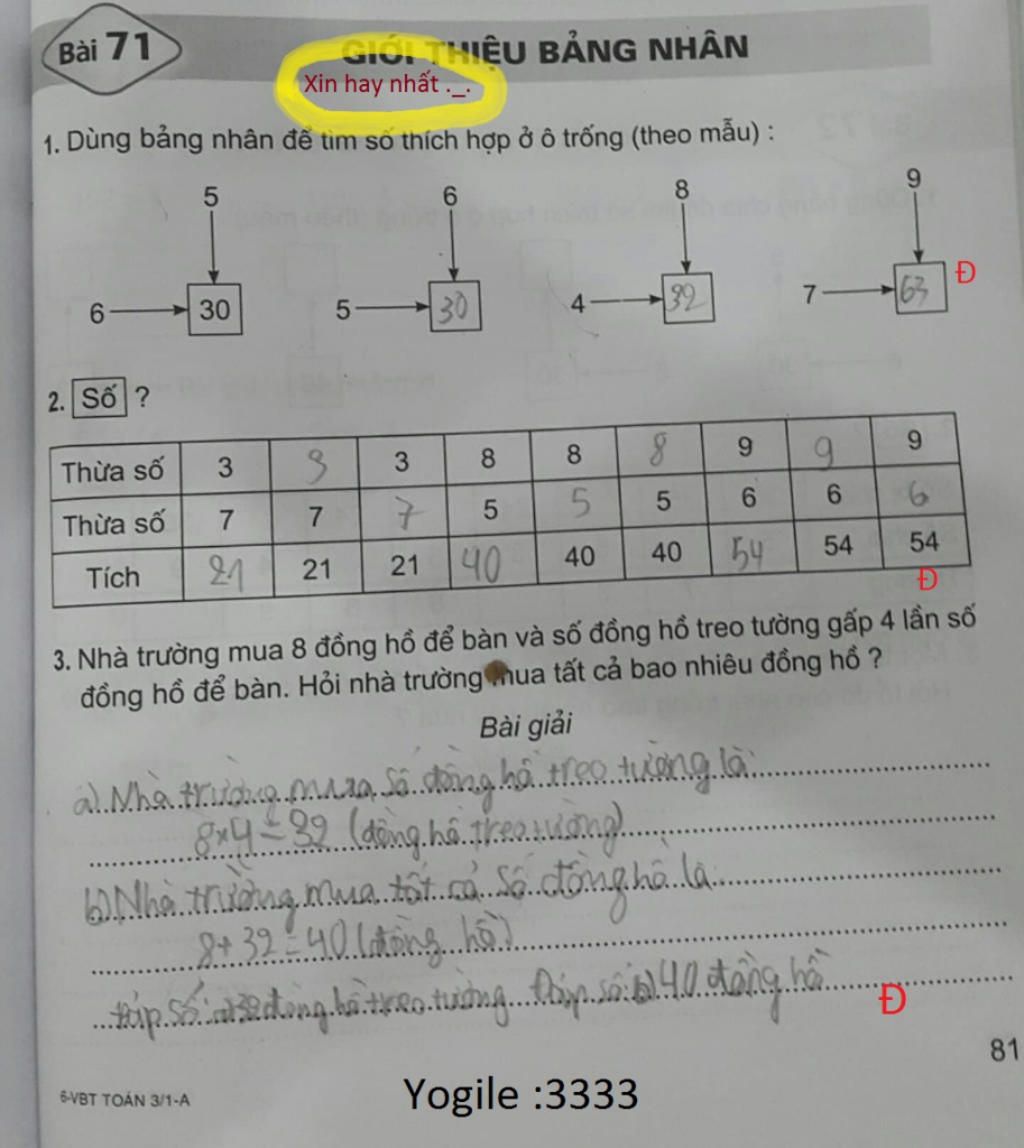 Bài 71
GIỚI THIỆU BẢNG NHÂN
Xin hay nhất ._.
1. Dùng bảng nhân để tìm số thích hợp ở ô trống (theo mẫu) :
5 6 8 9
6 30 5 30 4 32 7 63 Đ
2. Số ?
Thừa số 3 3 3 8 8 8 9 9 9
Thừa số 7 7 7 5 5 5 6 6 6
Tích 21 21 21 40 40 40 54 54 54
Đ
3. Nhà trường mua 8 đồng hồ để bàn và số đồng hồ treo tường gấp 4 lần số
đồng hồ để bàn. Hỏi nhà trường mua tất cả bao nhiêu đồng hồ ?
Bài giải
a) Nhà trường mua số đồng hồ treo tường là:
8 x 4 = 32 (đồng hồ treo tường)
b) Nhà trường mua tất cả số đồng hồ là
8 + 32 = 40 (đồng hồ)
Đáp số: a) 32 đồng hồ treo tường Đáp số: b) 40 đồng hồ
Đ
81
6-VBT TOÁN 3/1-A
Yogile :3333